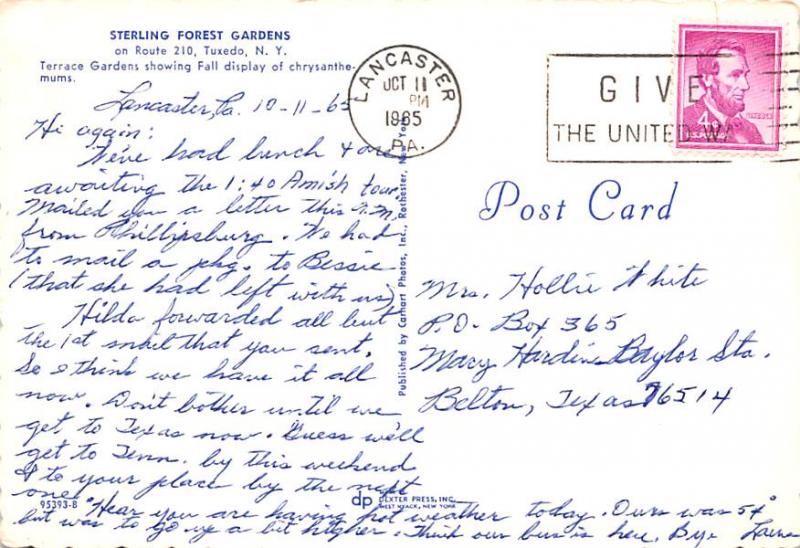 STERLING FOREST GARDENS
on Route 210, Tuxedo, N. Y.
Terrace Gardens showing Fall display of chrysanthe-
mums.
Lancaster, Pa. 10-11-65
Hi again:
We've had lunch & are
awaiting the 1:40 Amish tour
Mailed you a letter this A.M.
from Phillipsburg. We had
to mail a pkg. to Bessie
(that she had left with us)
Hilda forwarded all but
the 1st mail that you sent,
So I think we have it all
now. Don't bother until we
get to Texas now. Guess we'll
get to Tenn. by this weekend
& to your place by the next
one.
Hear you are having hot weather today. Ours was 54°
but was to go up a bit higher. Think our bus is here. Bye
95393-B
Published by Carhart Photos, Inc., Rochester, New York
dp DEXTER PRESS, INC.
WEST NYACK, NEW YORK
LANCASTER
OCT 11
PM
1965
PA.
GIVE
THE UNITED WAY
4¢
Post Card
Mrs. Hollie White
P.O. Box 365
Mary Hardin Baylor Sta.
Belton, Texas 76514